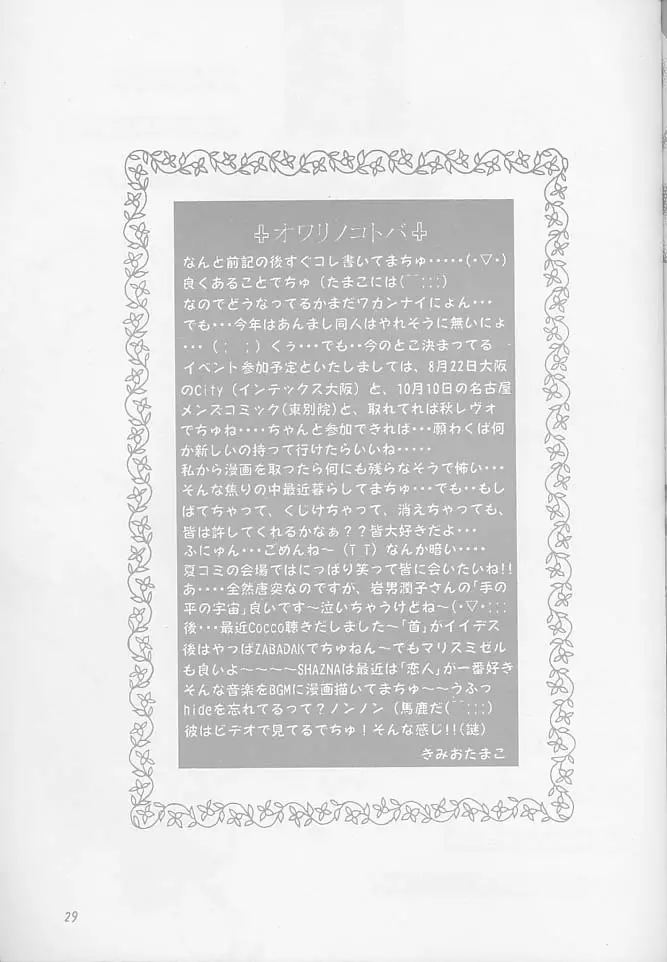 ✚オワリノコトバ✚
なんと前記の後すぐコレ書いてまちゅ・・・・・(・▽・)
良くあることでちゅ（たまこには(￣;;;)
なのでどうなってるかまだワカンナイにょん・・・
でも・・・今年はあんまし同人はやれそうに無いにょ
・・・（；；）くぅ・・・でも・・今のとこ決まってる
イベント参加予定といたしましては、8月22日大阪
のCity（インテックス大阪）と、10月10日の名古屋
メンズコミック(東別院)と、取れてれば秋レヴォ
でちゅね・・・・ちゃんと参加できれば・・・願わくば何
か新しいの持って行けたらいいね・・・・・
私から漫画を取ったら何にも残らなそうで怖い・・・
そんな焦りの中最近暮らしてまちゅ・・・でも・・もし
ばてちゃって、くじけちゃって、消えちゃっても、
皆は許してくれるかなぁ？？皆大好きだよ・・・
ふにゅん・・・ごめんね〜（T_T）なんか暗い・・・・
夏コミの会場ではにっぱり笑って皆に会いたいね!!
あ・・・・全然唐突なのですが、岩男潤子さんの「手の
平の宇宙」良いです〜泣いちゃうけどね〜(・▽・;;;
後・・・最近Cocco聴きだしました〜「首」がイイデス
後はやっぱZABADAKでちゅねん〜でもマリスミゼル
も良いよ〜〜〜〜SHAZNAは最近は「恋人」が一番好き
そんな音楽をBGMに漫画描いてまちゅ〜〜うふっ
hideを忘れてるって？ノンノン（馬鹿だ(￣;;;)
彼はビデオで見てるでちゅ！そんな感じ!!(謎)
きみおたまこ
29